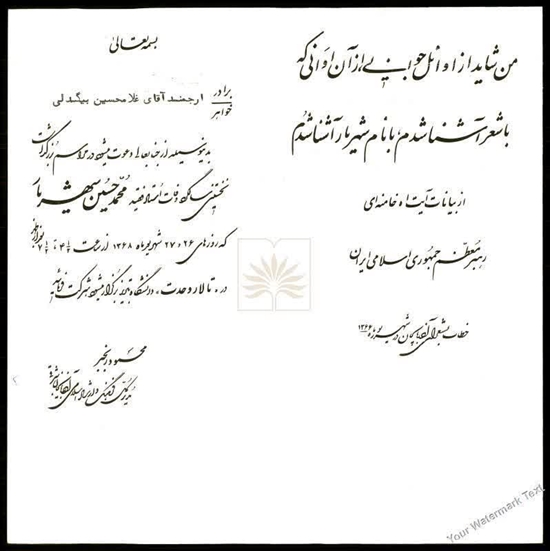 من شاید از اوائل جوانیم، از آن اوانی که
با شعر آشنا شدم؛ با نام شهریار آشنا شدم
از بیانات آیت‌اله خامنه‌ای
رهبر معظم جمهوری اسلامی ایران
خطاب بشعرای آذربایجان در شهریور ماه ۱۳۶۶
بسمه تعالی
برادر
خواهر
ارجمند آقای غلامحسین بیگدلی
بدینوسیله از جنابعالی دعوت میشود در مراسم بزرگداشت
نخستین سالگرد وفات استاد فقید محمدحسین شهریار
که روزهای ۲۶ و ۲۷ شهریور ماه ۱۳۶۸ از ساعت ۴½ تا ۷½ بعد از ظهر
در «تالار وحدت» دانشگاه تبریز برگزار میشود شرکت فرمائید
محمود رنجبر
مدیر کل فرهنگ و ارشاد اسلامی آذربایجان شرقی
Your Watermark Text